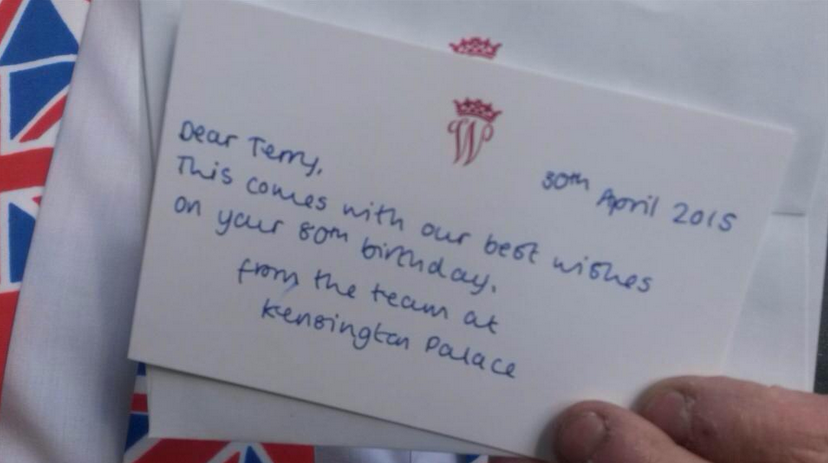 W
30th April 2015
Dear Terry,
This comes with our best wishes
on your 80th birthday.
from the team at
Kensington Palace